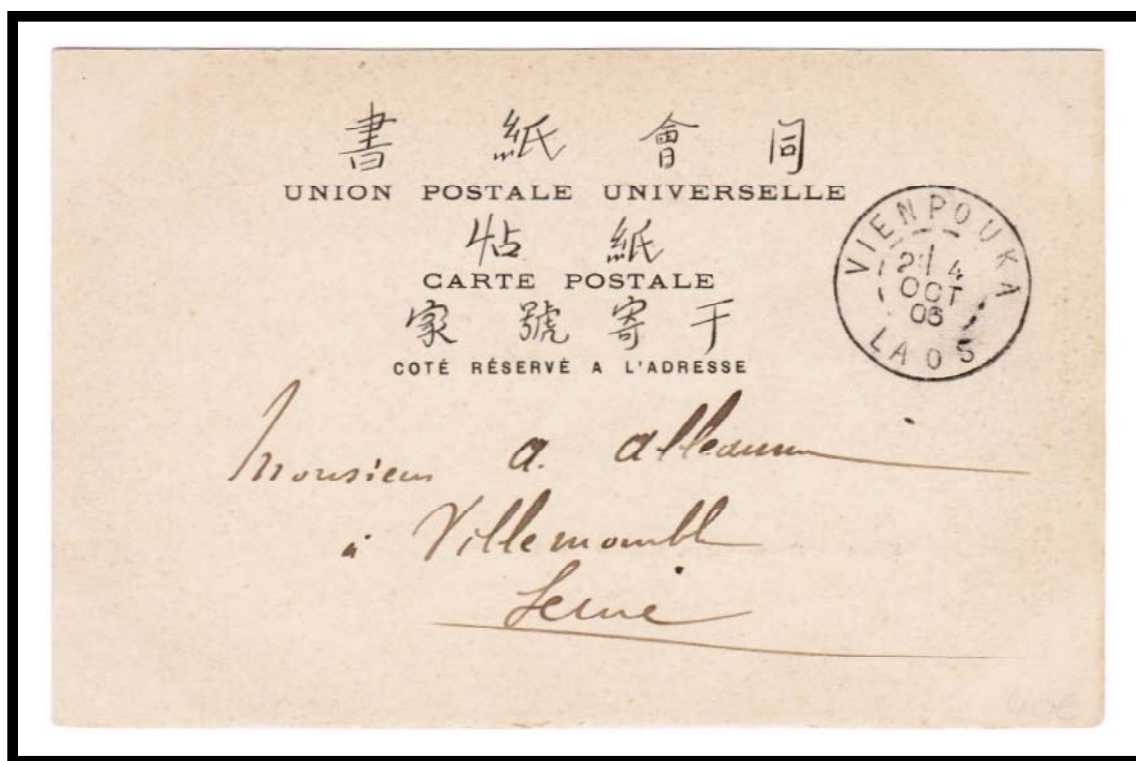 書 紙 會 同
UNION POSTALE UNIVERSELLE
帖 紙
CARTE POSTALE
家 號 寄 于
COTÉ RÉSERVÉ A L'ADRESSE
VIENPOUKA
4
OCT
LAOS
Monsieur A. Alleaume
à Villemomble
Seine